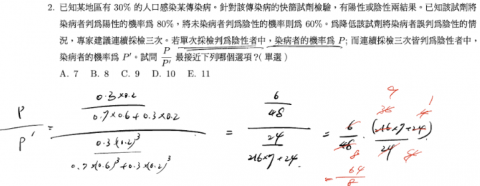 2. 已知某地區有 30% 的人口感染某傳染病。針對該傳染病的快篩試劑檢驗，有陽性或陰性兩結果。已知該試劑將
染病者判為陽性的機率為 80%，將未染病者判為陰性的機率則為 60%。為降低該試劑將染病者誤判為陰性的情
況，專家建議連續採檢三次。若單次採檢判為陰性者中，染病者的機率為 P；而連續採檢三次皆判為陰性者中，
染病者的機率為 P'。試問 P/P' 最接近下列哪個選項？(單選)
A. 7 B. 8 C. 9 D. 10 E. 11
P/P' = (0.3×0.2 / 0.7×0.6+0.3×0.2) / (0.3×(0.2)³ / 0.7×(0.6)³+0.3×(0.2)³) = (6/48) / (24 / 216×7+24) = 6/48 · (216×7+24)/24
= 64/8